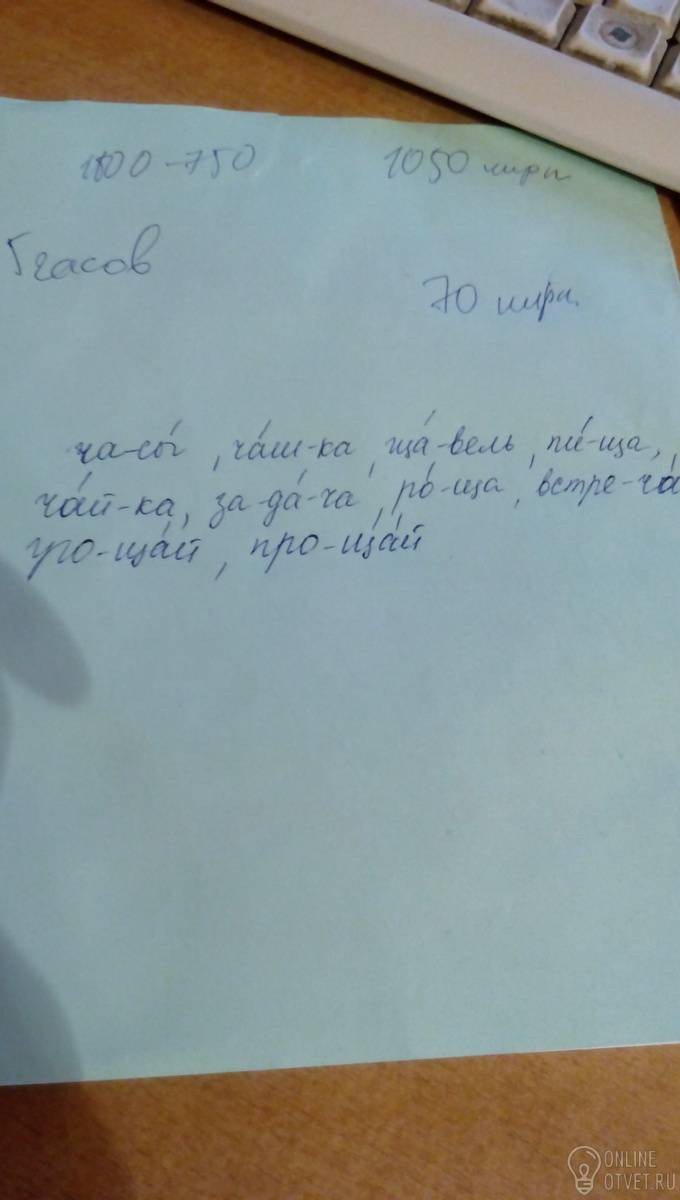 1800-750 1050 ширп.
5 часов
70 ширп.
ча-сы́, ча́ш-ка, ща́-вель, пи́-ща,,
ча́й-ка, за-да́-ча, ро́-ща, встре-ча́
уго-ща́й, про-ща́й
ONLINE
OTVET.RU